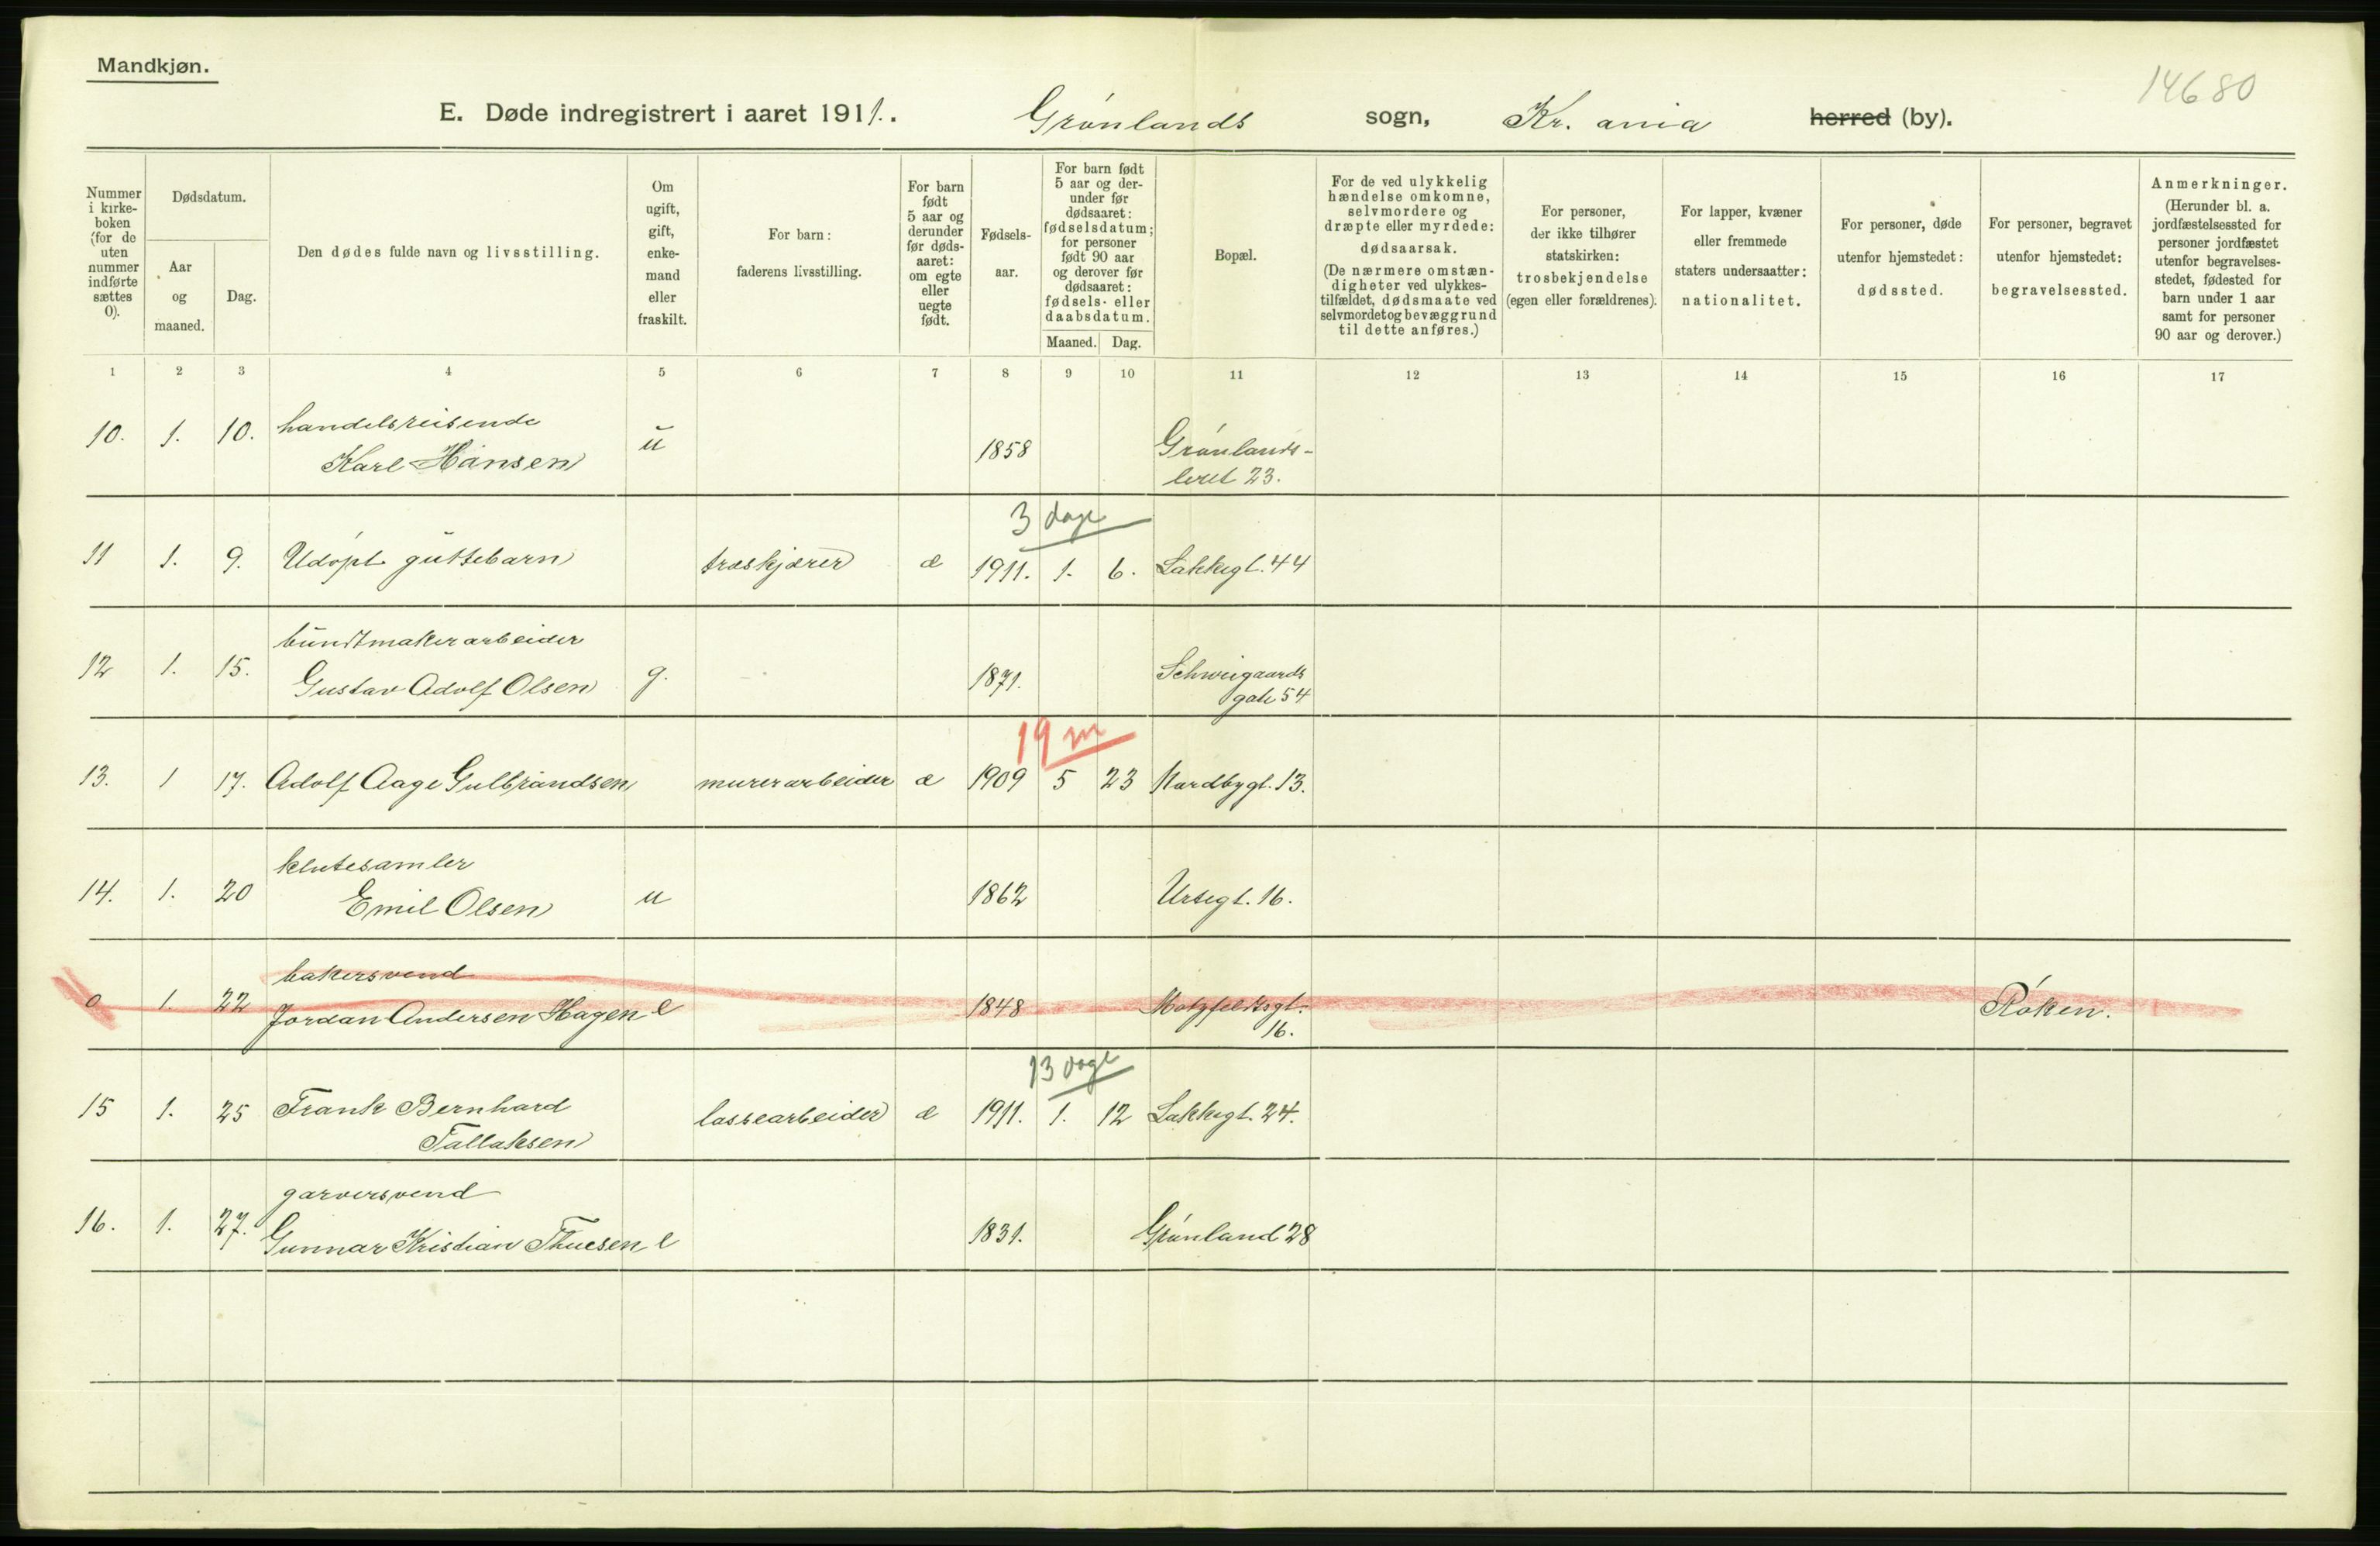 Mandkjøn.
14680
E. Døde indregistrert i aaret 1911. Grønlands sogn, Kr. ania herred (by).
Nummer i kirkeboken (for de uten nummer indførte sættes 0).
Dødsdatum.
Aar og maaned.
Dag.
Den dødes fulde navn og livsstilling.
Om ugift, gift, enkemand eller fraskilt.
For barn: faderens livsstilling.
For barn født 5 aar og derunder før dødsaaret: om egte eller uegte født.
Fødselsaar.
For barn født 5 aar og derunder før dødsaaret: fødselsdatum; for personer født 90 aar og derover før dødsaaret: fødsels- eller daabsdatum.
Maaned. Dag.
Bopæl.
For de ved ulykkelig hændelse omkomne, selvmordere og dræpte eller myrdede: dødsaarsak. (De nærmere omstændigheter ved ulykkestilfældet, dødsmaate ved selvmordet og bevæggrund til dette anføres.)
For personer, der ikke tilhører statskirken: trosbekjendelse (egen eller forældrenes).
For lapper, kvæner eller fremmede staters undersaatter: nationalitet.
For personer, døde utenfor hjemstedet: dødssted.
For personer, begravet utenfor hjemstedet: begravelsessted.
Anmerkninger. (Herunder bl. a. jordfæstelsessted for personer jordfæstet utenfor begravelsesstedet, fødested for barn under 1 aar samt for personer 90 aar og derover.)
1 2 3 4 5 6 7 8 9 10 11 12 13 14 15 16 17
handelsreisende
10. 1. 10. Karl Hansen u 1858 Grønlands-
leret 23.
3 dage
11 1. 9. Udøpt guttebarn træskjærer æ 1911. 1. 6. Lakkegt. 44
bundtmakerarbeider
12 1. 15. Gustav Adolf Olsen g. 1871. Schweigaards
gate 54
19 m
13. 1 17. Adolf Aage Gulbrandsen murerarbeider æ 1909 5 23 Nordbygt. 13.
klutesamler
14. 1. 20 Emil Olsen u 1862 Urtegt. 16.
bakersvend
0 1. 22 Jordan Andersen Hagen e 1848 Motzfeldtsgt. Røken.
16.
13 dage
15 1. 25 Frank Bernhard lossearbeider æ 1911. 1. 12 Lakkegt. 24.
Tallaksen
garversvend
16. 1. 27. Gunnar Kristian Thuesen e 1831. Grønland 28